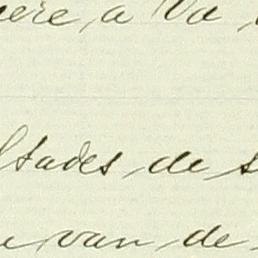 ere, a Va
ltades de s
e van de